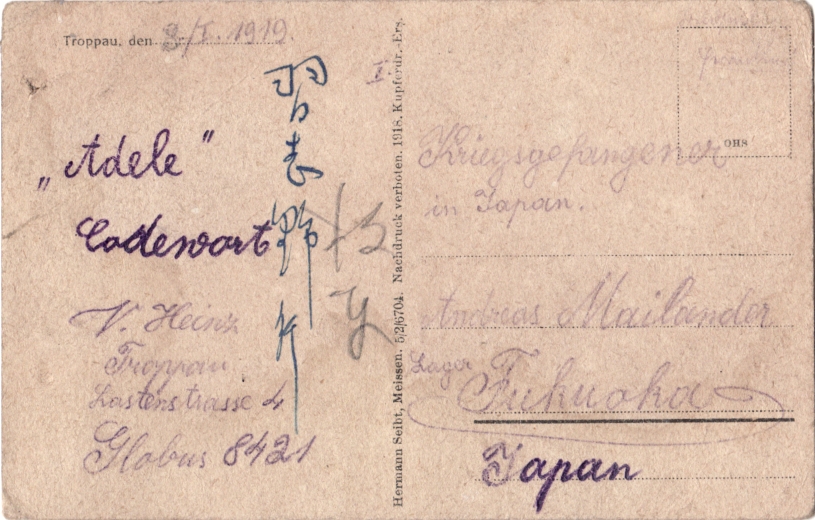 Troppau, den 3/I. 1919.
„Adele"
Codewort
V. Heinz
Troppau
Lastenstrasse 4
Globus 8421
習志野行
Hermann Seibt, Meissen. 5/2/6704. Nachdruck verboten. 1918. Kupferdr.-Ers.
I.
Kriegsgefangener
in Japan.
Andreas Mailänder
Lager
Fukuoka
Japan